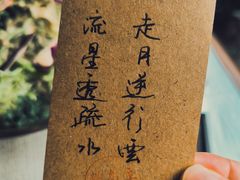 走月逆行雲
流星透疏水